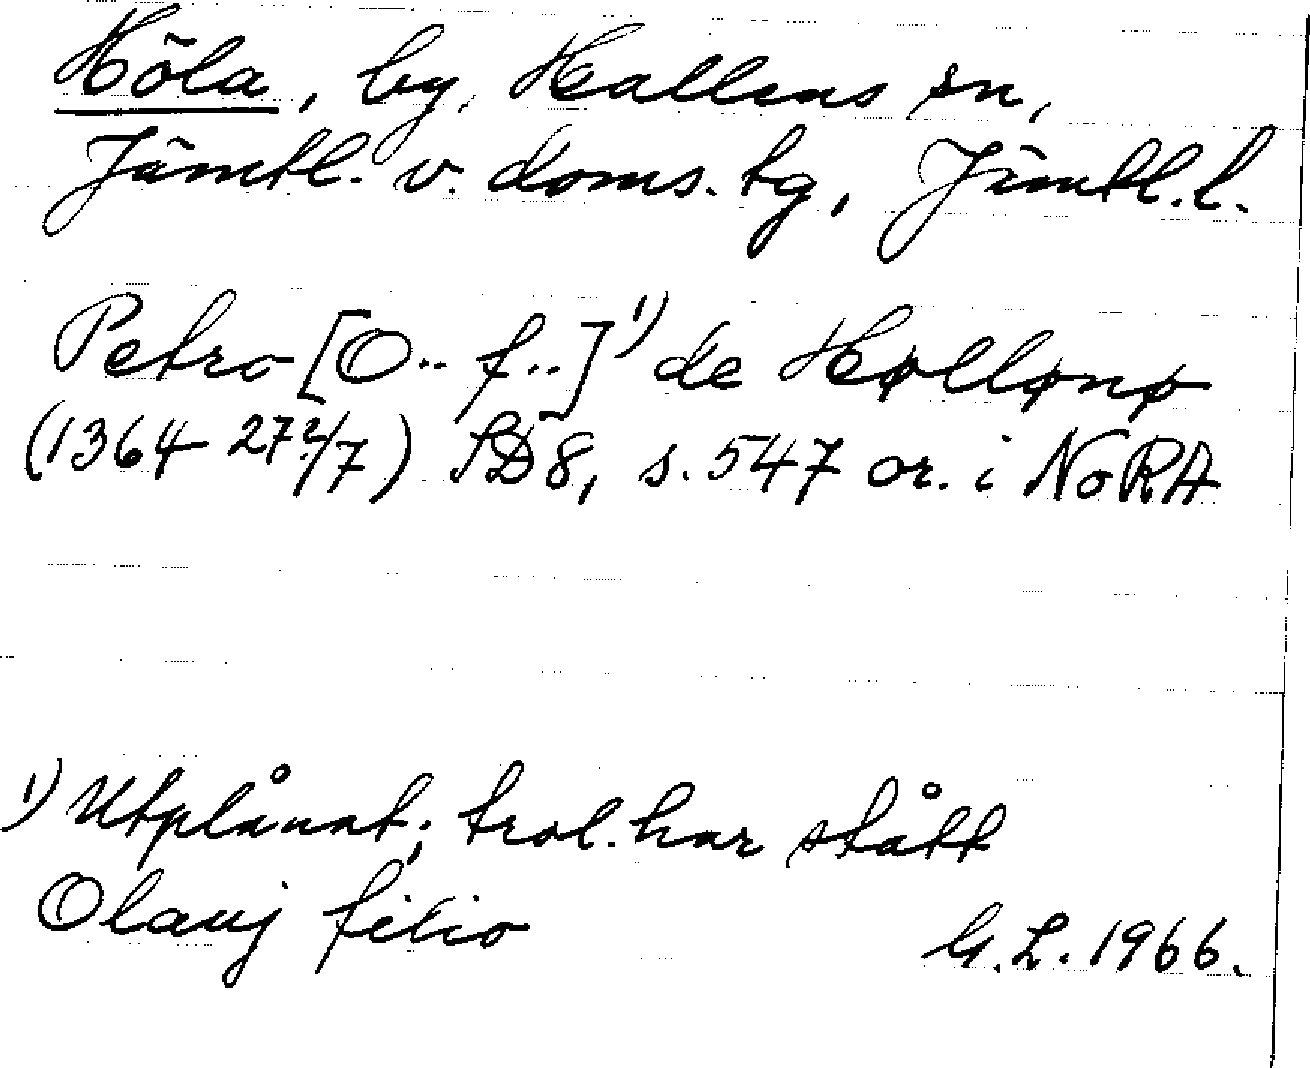 Höla, by, Hallens sn,
Jämtl. v. doms. tg, Jämtl. l.
Petro [O.. f..]¹⁾ de Høllønø
(1364 27?/7) SD 8, s. 547 or. i NoRA
¹⁾ Utplånat; trol. har stått
Olauj filio
G. L. 1966.